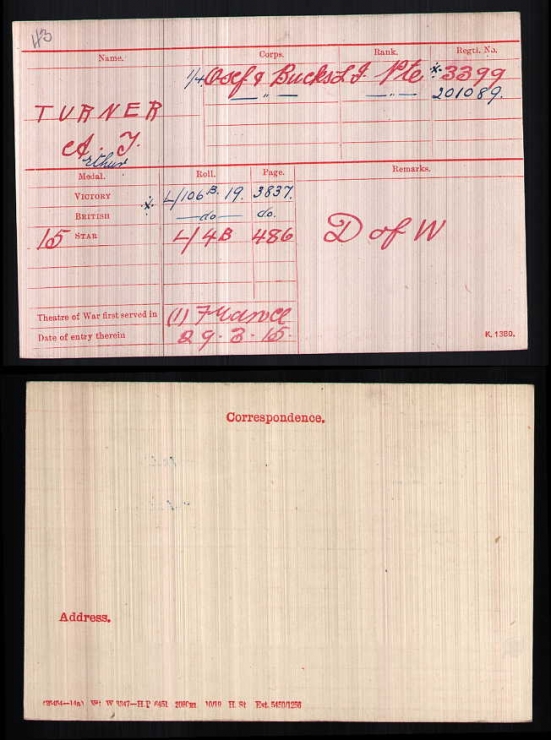 H3
Name. Corps. Rank. Regtl. No.
1/4 Oxf & Bucks L I. Pte × 3399
—"— —"— 201089.
TURNER
A. J.
Arthur
Medal. Roll. Page. Remarks.
VICTORY × L/106 B. 19. 3837.
BRITISH —do— do.
15 STAR L/4B 486 D of W
Theatre of War first served in (1) France
Date of entry therein 29.3.15.
K. 1380.
Correspondence.
Address.